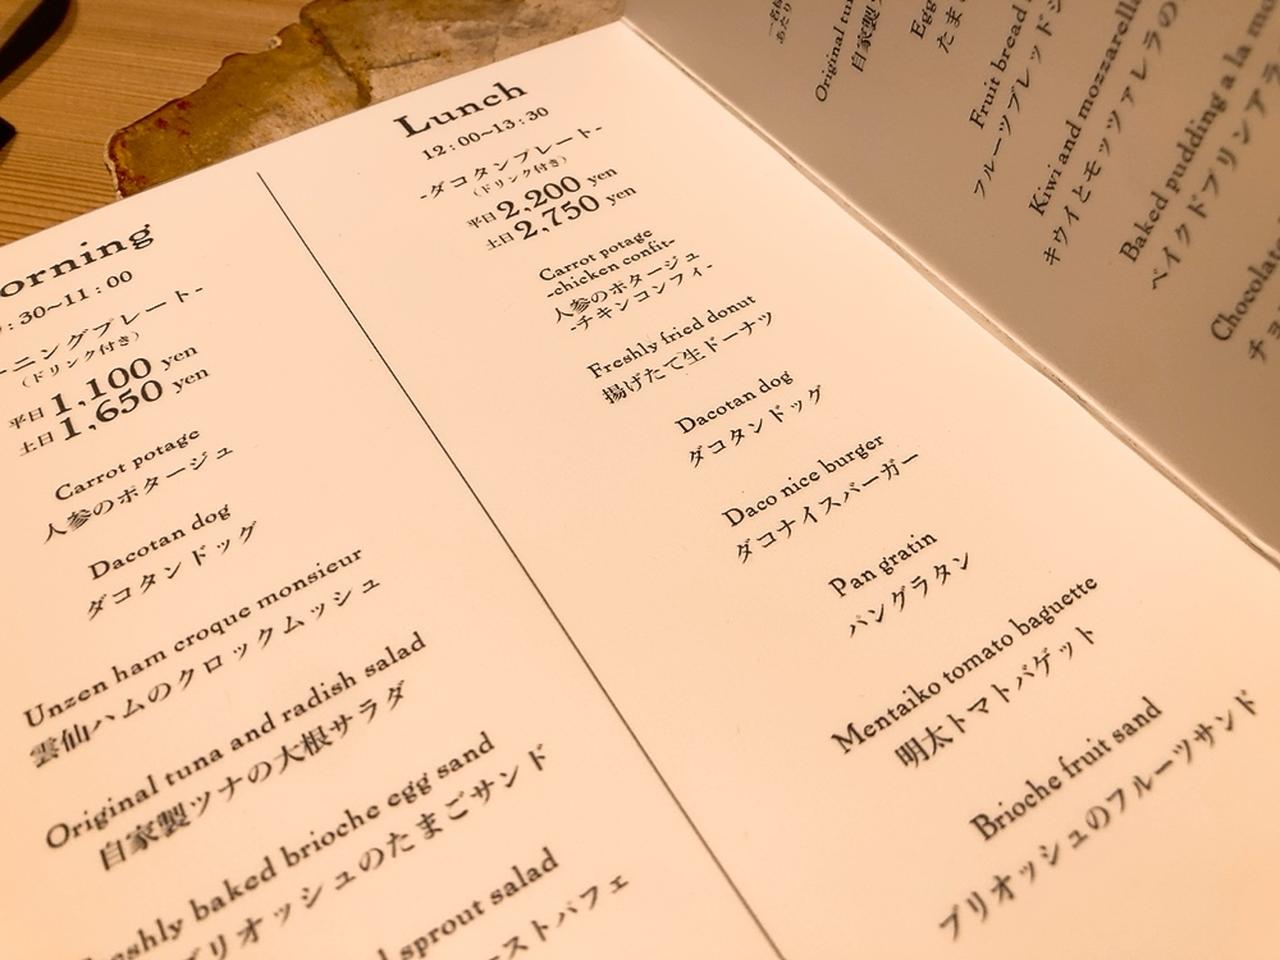 orning
:30~11:00
ーニングプレート-
(ドリンク付き)
平日 1,100 yen
土日 1,650 yen
Carrot potage
人参のポタージュ
Dacotan dog
ダコタンドッグ
Unzen ham croque monsieur
雲仙ハムのクロックムッシュ
Original tuna and radish salad
自家製ツナの大根サラダ
reshly baked brioche egg sand
ブリオッシュのたまごサンド
sprout salad
ーストパフェ
Lunch
12:00~13:30
-ダコタンプレート-
(ドリンク付き)
平日 2,200 yen
土日 2,750 yen
Carrot potage
-chicken confit-
人参のポタージュ
-チキンコンフィ-
Freshly fried donut
揚げたて生ドーナツ
Dacotan dog
ダコタンドッグ
Daco nice burger
ダコナイスバーガー
Pan gratin
パングラタン
Mentaiko tomato baguette
明太トマトバゲット
Brioche fruit sand
ブリオッシュのフルーツサンド
Original tu
自家製ツ
Egg
たまご
Fruit bread
フルーツブレッド
Kiwi and mozzarella
キウイとモッツァレラの
Baked pudding a la mo
ベイクドプリンアラ
Chocolat
チョ